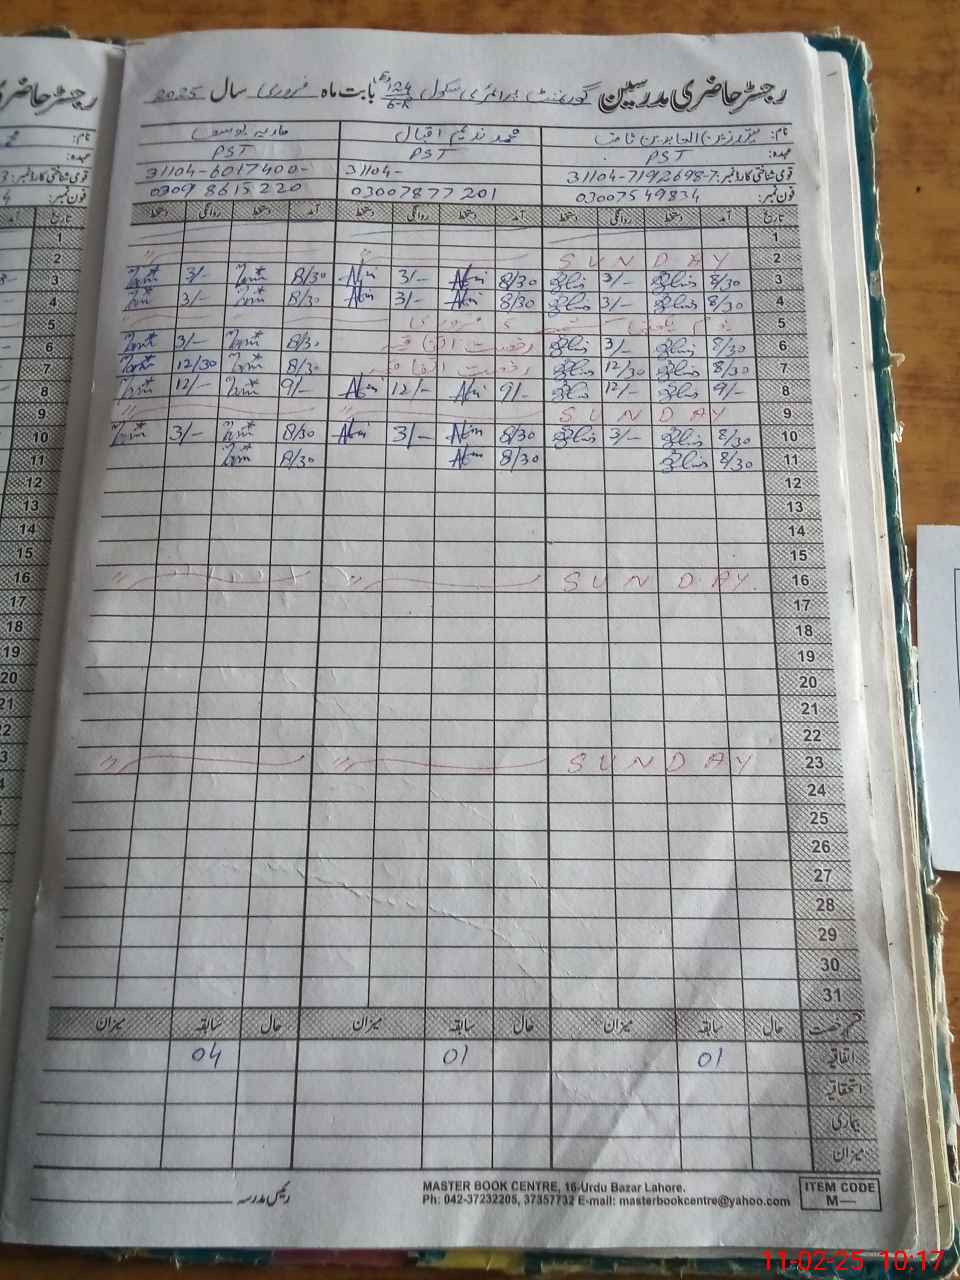 رجسٹر حاضری مدرسین گورنمنٹ پرائمری سکول 124/6-R بابت ماہ فروری سال 2025
نام: زین العابدین ثاقب محمد ندیم اقبال ماریہ یوسف
عہدہ: PST PST PST
قومی شناختی کارڈ نمبر: 31104-7192698-7 31104- 31104-6017400-
فون نمبر: 03007549834 03007877201 0309 8615220
تاریخ آمد دستخط روانگی دستخط آمد دستخط روانگی دستخط آمد دستخط روانگی دستخط
1
2 SUNDAY 〃 〃
3 8/30 3/- 8/30 3/- 8/30 3/-
4 8/30 3/- 8/30 3/- 8/30 3/-
5 5 فروری
6 8/30 3/- رخصت اتفاقیہ 8/30 3/-
7 8/30 12/30 رخصت اتفاقیہ 8/30 12/30
8 9/- 12/- 9/- 12/- 9/- 12/-
9 SUNDAY 〃 〃
10 8/30 3/- 8/30 3/- 8/30 3/-
11 8/30 8/30 8/30
12
13
14
15
16 SUNDAY 〃 〃
17
18
19
20
21
22
23 SUNDAY 〃 〃
24
25
26
27
28
29
30
31
قسم رخصت حال سابقہ میزان حال سابقہ میزان حال سابقہ میزان
اتفاقیہ 01 01 04
استحقاقیہ
بیماری
میزان
رئیس مدرسہ
MASTER BOOK CENTRE, 16-Urdu Bazar Lahore.
Ph: 042-37232205, 37357732 E-mail: masterbookcentre@yahoo.com
ITEM CODE
M—
11-02-25 10:17